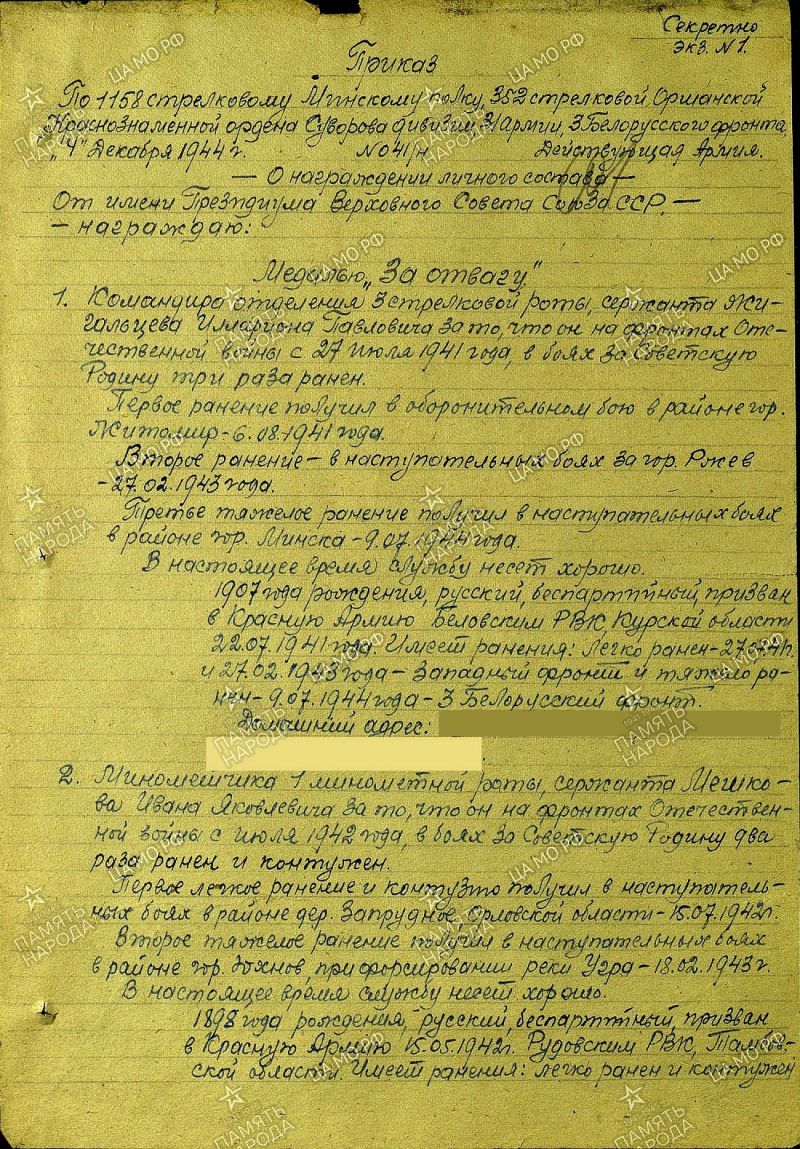 Секретно
экз. N 1.
Приказ
По 1158 стрелковому Минскому полку, 352 стрелковой Оршанской
Краснознаменной ордена Суворова дивизии, 31 Армии, 3 Белорусского фронта
"4" Декабря 1944 г. No 041/н Действующая Армия.
— О награждении личного состава —
От имени Президиума Верховного Совета Союза ССР. —
— награждаю:
Медалью „За отвагу"
1. Командира отделения 3 стрелковой роты, сержанта Жи-
гальцева Илариона Павловича за то, что он на фронтах Оте-
чественной войны с 27 июля 1941 года, в боях за Советскую
Родину три раза ранен.
Первое ранение получил в оборонительном бою в районе гор.
Житомир - 6.08.1941 года.
Второе ранение — в наступательных боях за гор. Ржев
- 27.02.1943 года.
Третье тяжелое ранение получил в наступательных боях
в районе гор. Минска - 9.07.1944 года.
В настоящее время службу несет хорошо.
1907 года рождения, русский, беспартийный, призван
в Красную Армию Беловским РВК, Курской области
22.07.1941 года. Имеет ранения: легко ранен -
и 27.02.1943 года - Западный фронт и тяжело ра-
нен - 9.07.1944 года - 3 Белорусский фронт.
Домашний адрес:
2. Минометчика 1 минометной роты, сержанта Мешко-
ва Ивана Яковлевича за то, что он на фронтах Отечествен-
ной войны с июля 1942 года, в боях за Советскую Родину два
раза ранен и контужен.
Первое легкое ранение и контузию получил в наступатель-
ных боях в районе дер. Запрудное, Орловской области - 15.07.1942 г.
Второе тяжелое ранение получил в наступательных боях
в районе гор. Юхнов, при форсировании реки Угра - 18.02.1943 г.
В настоящее время службу несет хорошо.
1898 года рождения, русский, беспартийный, призван
в Красную Армию 15.05.1942 г. Рудовским РВК, Тамбов-
ской области. Имеет ранения: легко ранен и контужен
ЦАМО.РФ
ПАМЯТЬ
НАРОДА